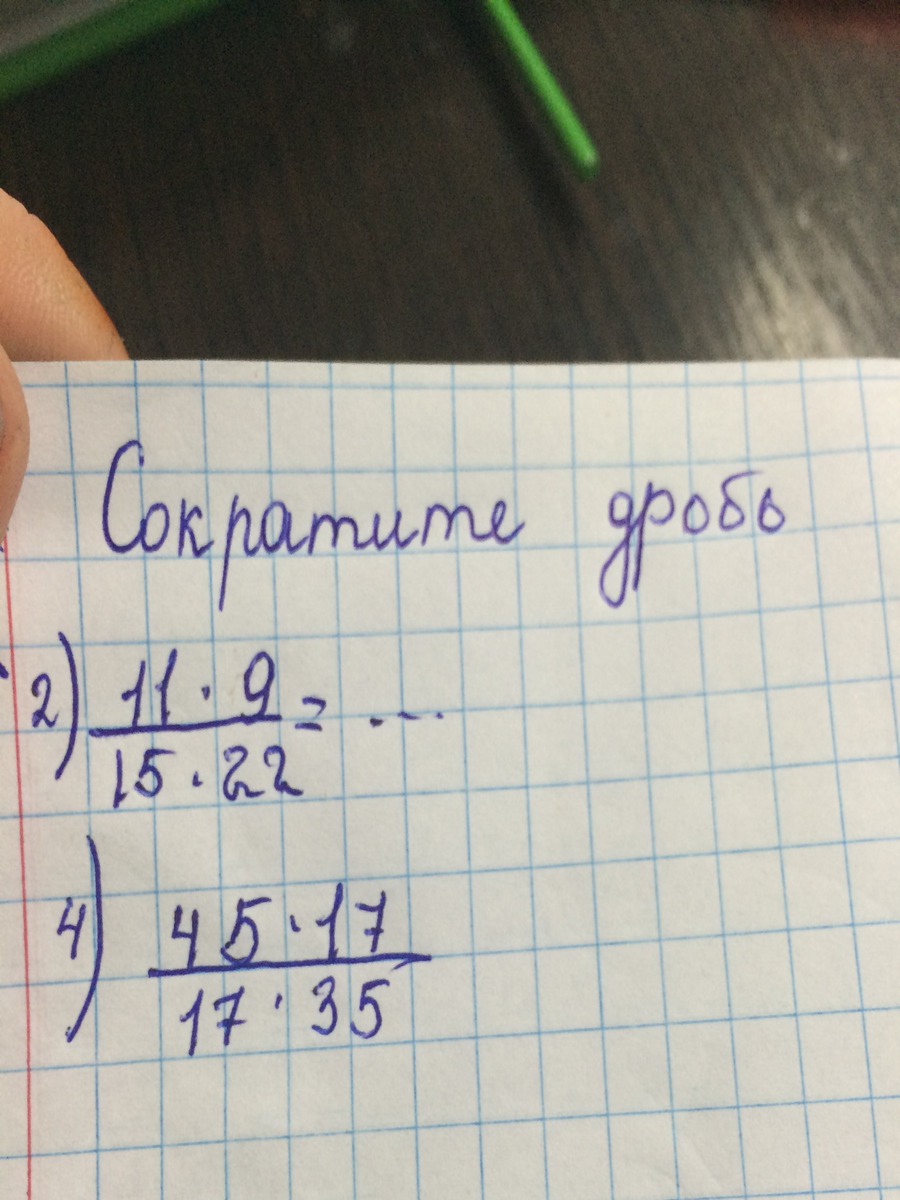 Сократите дробь
2) 11 · 9 = ...
15 · 22
4) 45 · 17
17 · 35